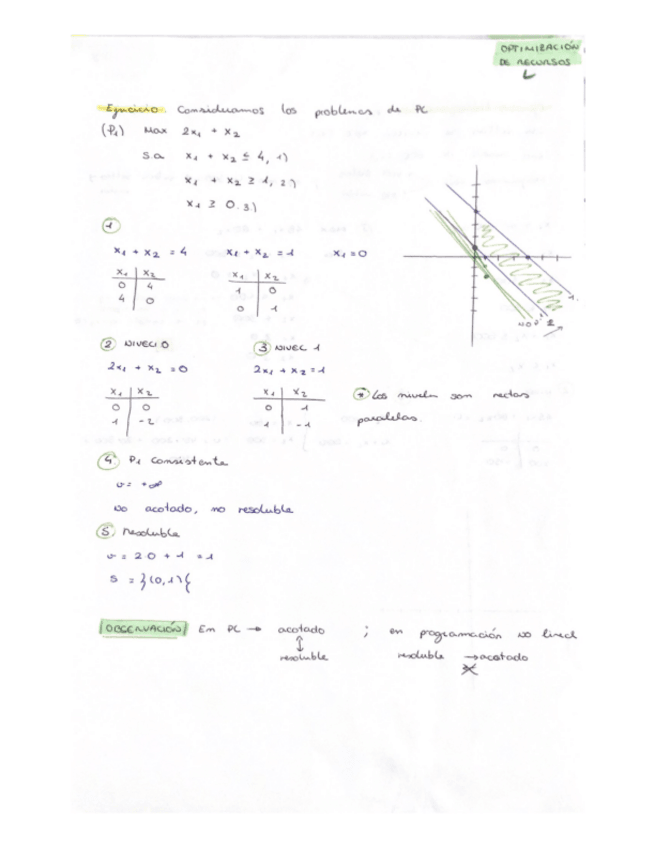 OPTIMIZACIÓN
DE RECURSOS
Ejercicio. Consideramos los problemas de PL
(P₁) Max 2x₁ + x₂
s.a x₁ + x₂ ≤ 4, 1)
x₁ + x₂ ≥ 1, 2)
x₁ ≥ 0. 3)
①
x₁ + x₂ = 4 x₁ + x₂ = 1 x₁ = 0
x₁ | x₂ x₁ | x₂
0 | 4 1 | 0
4 | 0 0 | 1
1.
2
② NIVEL 0 ③ NIVEL 1
2x₁ + x₂ = 0 2x₁ + x₂ = 1
x₁ | x₂ x₁ | x₂
0 | 0 0 | 1
1 | -2 1 | -1
* Los niveles son rectas
paralelas.
④ P₁ consistente
v = +∞
No acotado, no resoluble
⑤ Resoluble
v = 2·0 + 1 = 1
S = }(0,1){
OBSERVACIÓN Em PL → acotado ; en programación no lineal
↕
resoluble resoluble → acotado